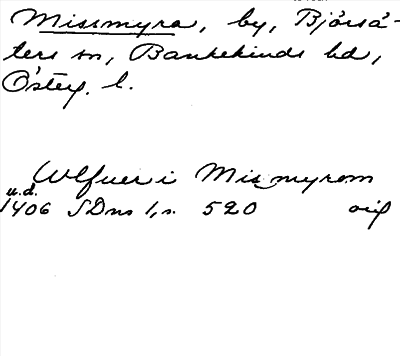 Missmyra, by, Björså-
ters sn, Bankekinds hd,
Östg. l.
Wlfuer i Mismyrom
u.d.
1406 SDns 1, s. 520 orig